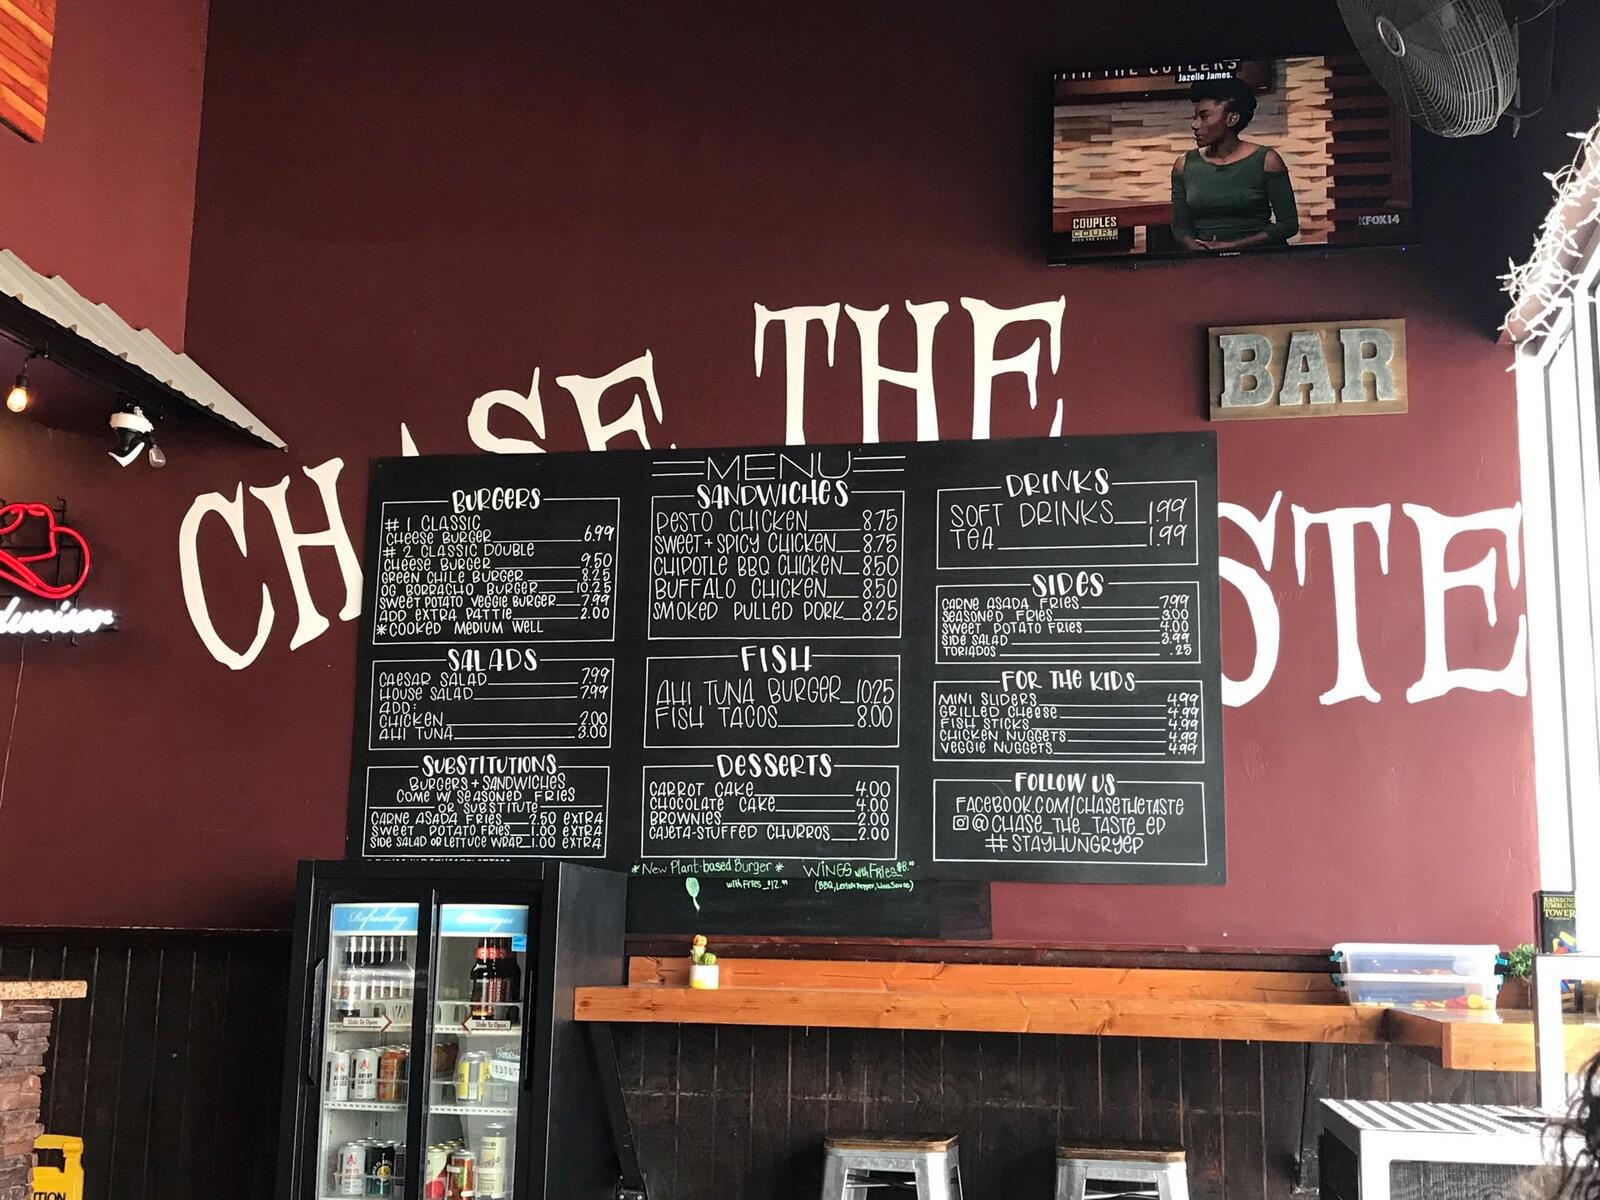 WITH THE CUTLERS
Jazelle James.
COUPLES
COURT
WITH THE CUTLERS
KFOX14
CHASE THE
STE
BAR
MENU
BURGERS
# 1 CLASSIC
CHEESE BURGER 6.99
# 2 CLASSIC DOUBLE
CHEESE BURGER 9.50
GREEN CHILE BURGER 8.25
OG BORRACHO BURGER 10.25
SWEET POTATO VEGGIE BURGER 7.99
ADD EXTRA PATTIE 2.00
*COOKED MEDIUM WELL
SALADS
CAESAR SALAD 7.99
HOUSE SALAD 7.99
ADD:
CHICKEN 2.00
AHI TUNA 3.00
SUBSTITUTIONS
BURGERS + SANDWICHES
COME W/ SEASONED FRIES
OR SUBSTITUTE
CARNE ASADA FRIES 2.50 EXTRA
SWEET POTATO FRIES 1.00 EXTRA
SIDE SALAD OR LETTUCE WRAP 1.00 EXTRA
SANDWICHES
PESTO CHICKEN 8.75
SWEET + SPICY CHICKEN 8.75
CHIPOTLE BBQ CHICKEN 8.50
BUFFALO CHICKEN 8.50
SMOKED PULLED PORK 8.25
FISH
AHI TUNA BURGER 10.25
FISH TACOS 8.00
DESSERTS
CARROT CAKE 4.00
CHOCOLATE CAKE 4.00
BROWNIES 2.00
CAJETA-STUFFED CHURROS 2.00
DRINKS
SOFT DRINKS 1.99
TEA 1.99
SIDES
CARNE ASADA FRIES 7.99
SEASONED FRIES 3.00
SWEET POTATO FRIES 4.00
SIDE SALAD 3.99
TORIADOS .25
FOR THE KIDS
MINI SLIDERS 4.99
GRILLED CHEESE 4.99
FISH STICKS 4.99
CHICKEN NUGGETS 4.99
VEGGIE NUGGETS 4.99
FOLLOW US
FACEBOOK.COM/CHASETHETASTE
@CHASE_THE_TASTE_EP
#STAYHUNGRYEP
* New Plant-based Burger *
with Fries $12.00
WINGS with Fries $8.00
(BBQ, Lemon Pepper, Wing Sauce)
dweiser
Refreshing
Beverages
Slide To Open
Slide To Open
AVERY
LAGER
RAINBOW
TUMBLING
TOWER
TION